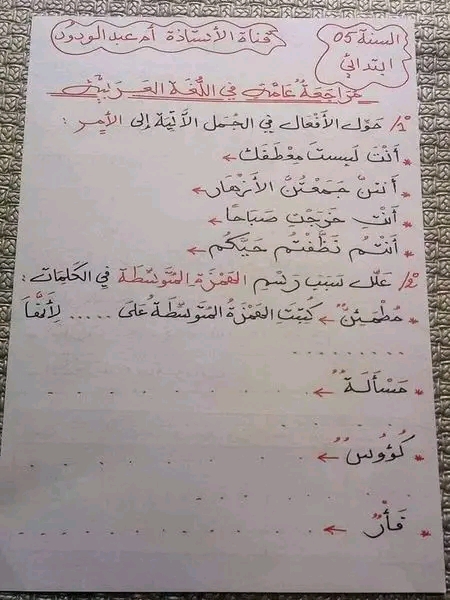 السنة 05
ابتدائي
قناة الأستاذة أم عبد الودود
مراجعة عامة في اللغة العربية
1/ حَوِّل الأفعال في الجمل الآتية إلى الأمر :
* أنْتَ لَبِستَ مِعْطَفَكَ ←
* أنتنَّ جَمَعْتُنَّ الأزهار ←
* أنتِ خَرَجْتِ صَبَاحًا ←
* أنْتُمْ نَظَّفْتُم حَيَّكُم ←
2/ عَلِّل سَبَب رَسْمِ الهَمْزَةِ المُتَوَسِّطَة في الكلمات :
* مُطْمَئِنٌّ ← كُتِبَتِ الهَمْزَةُ المُتَوَسِّطَةُ عَلَى ..... لِأَنَّهَا
........
* مَسْأَلَةٌ ← . . . . . . . . . .
. . . . . . . . . .
* كُؤُوسٌ ← . . . . . . . . . .
. . . . . . . . . .
* فَأْرٌ ← . . . . . . . . . .